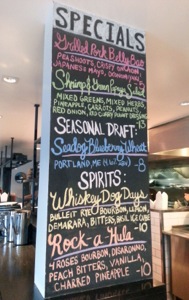 SPECIALS
Grilled Pork Belly Bao
PEA SHOOTS, CRISPY
JAPANESE MAYO,
Shrimp & Green Papaya Salad
MIXED GREENS, MIXED HERBS,
PINEAPPLE, CARROTS, PEANUTS,
RED ONION, RED CURRY DRESSING
SEASONAL DRAFT:
Seadog Blueberry Wheat
PORTLAND, ME -8
SPIRITS:
Whiskey Dog Days
BULLEIT RYE BOURBON, LEMON,
DEMARARA, BITTERS, ICE CUBE
Rock-a-Hula -10
4 ROSES BOURBON, DISARONNO,
PEACH BITTERS, VANILLA,
CHARRED PINEAPPLE -10